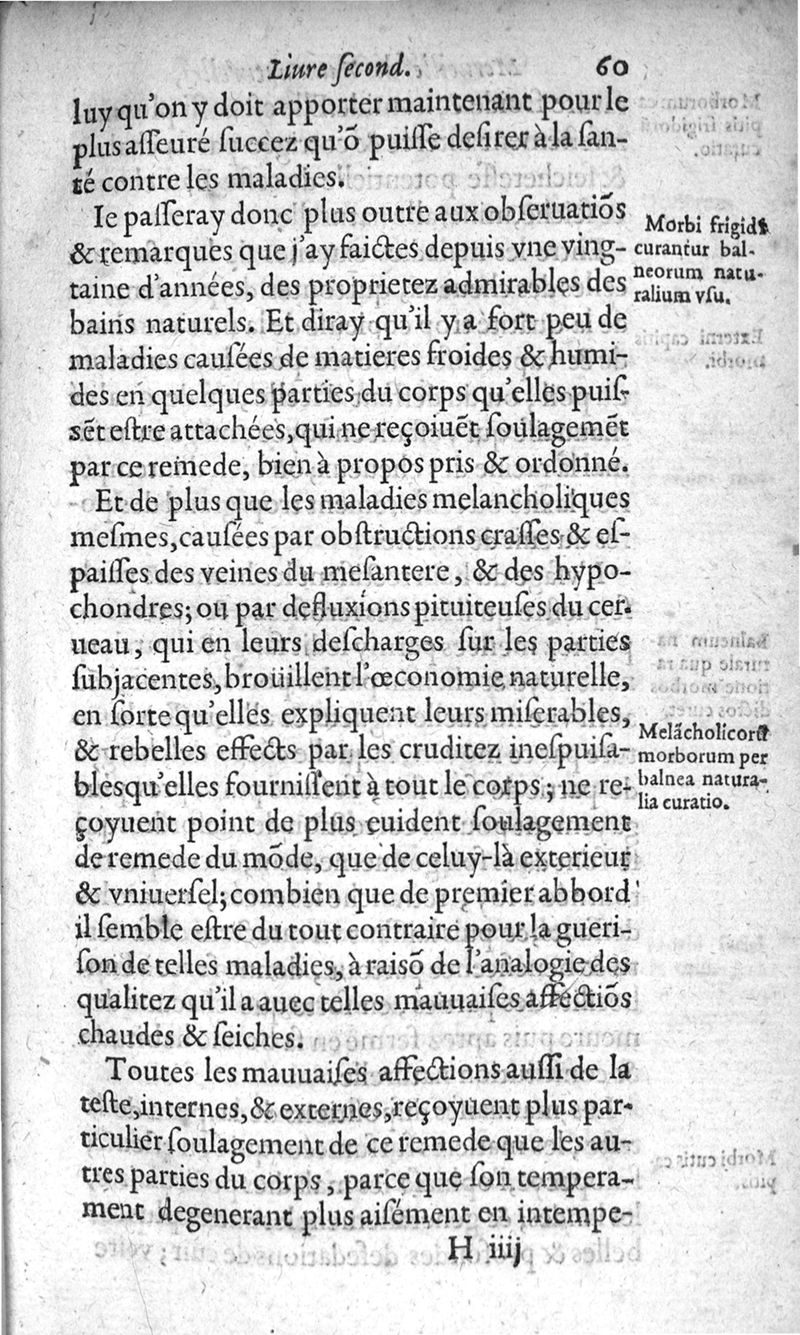 Liure ſecond. 60
luy qu'on y doit apporter maintenant pour le
plus aſſeuré ſuccez qu'õ puiſſe deſirer à la ſan-
té contre les maladies.
Ie paſſeray donc plus outre aux obſeruatiõs
& remarques que j'ay faictes depuis vne ving-
taine d'années, des proprietez admirables des
bains naturels. Et diray qu'il y a fort peu de
maladies cauſées de matieres froides & humi-
des en quelques parties du corps qu'elles puiſ-
sẽt eſtre attachées, qui ne reçoiuẽt ſoulagemẽt
par ce remede, bien à propos pris & ordonné.
Et de plus que les maladies melancholiques
meſmes, cauſées par obſtructions craſſes & eſ-
paiſſes des veines du meſantere, & des hypo-
chondres; ou par defluxions pituiteuſes du cer-
ueau, qui en leurs deſcharges ſur les parties
ſubjacentes, broüillent l'œconomie naturelle,
en ſorte qu'elles expliquent leurs miſerables,
& rebelles effects par les cruditez ineſpuiſa-
bles qu'elles fourniſſent à tout le corps; ne re-
çoyuent point de plus euident ſoulagement
de remede du mõde, que de celuy-là exterieur
& vniuerſel; combien que de premier abbord
il ſemble eſtre du tout contraire pour la gueri-
ſon de telles maladies, à raiſõ de l'analogie des
qualitez qu'il a auec telles mauuaiſes affectiõs
chaudes & ſeiches.
Toutes les mauuaiſes affections auſſi de la
teſte, internes, & externes, reçoyuent plus par-
ticulier ſoulagement de ce remede que les au-
tres parties du corps, parce que ſon tempera-
ment degenerant plus aiſément en intempe-
H iiij
Morbi frigidi
curantur bal-
neorum natu-
ralium vſu.
Melãcholicorũ
morborum per
balnea natura-
lia curatio.